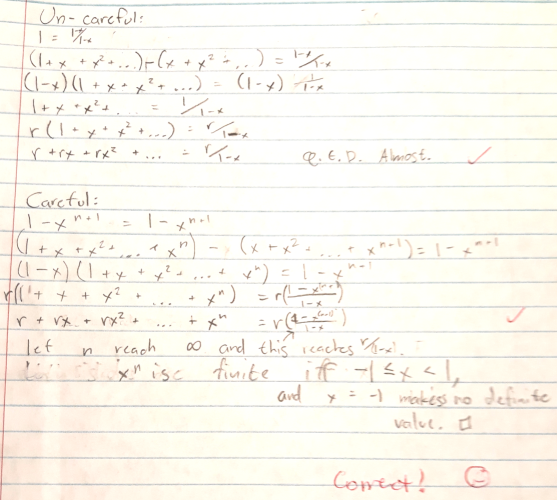 Un-careful:
1 = 1-x/1-x
(1+x + x² + ...) - (x + x² + ..) = 1-x/1-x
(1-x)(1 + x + x² + ...) = (1-x) 1/1-x
1 + x + x² + ... = 1/1-x
r(1 + x + x² + ...) = r/1-x
r + rx + rx² + ... = r/1-x Q.E.D. Almost. ✓
Careful:
1 - xⁿ⁺¹ = 1 - xⁿ⁺¹
(1 + x + x² + ... + xⁿ) - (x + x² + ... + xⁿ⁺¹) = 1 - xⁿ⁺¹
(1-x)(1 + x + x² + ... + xⁿ) = 1 - xⁿ⁺¹
r(1 + x + x² + ... + xⁿ) = r(1 - xⁿ⁺¹/1-x)
r + rx + rx² + ... + xⁿ = r(1 - xⁿ⁺¹/1-x) ✓
let n reach ∞ and this reaches r/(1-x).
xⁿ is finite iff -1 ≤ x < 1,
and x = -1 makes no definite
value. □
Correct! ☺